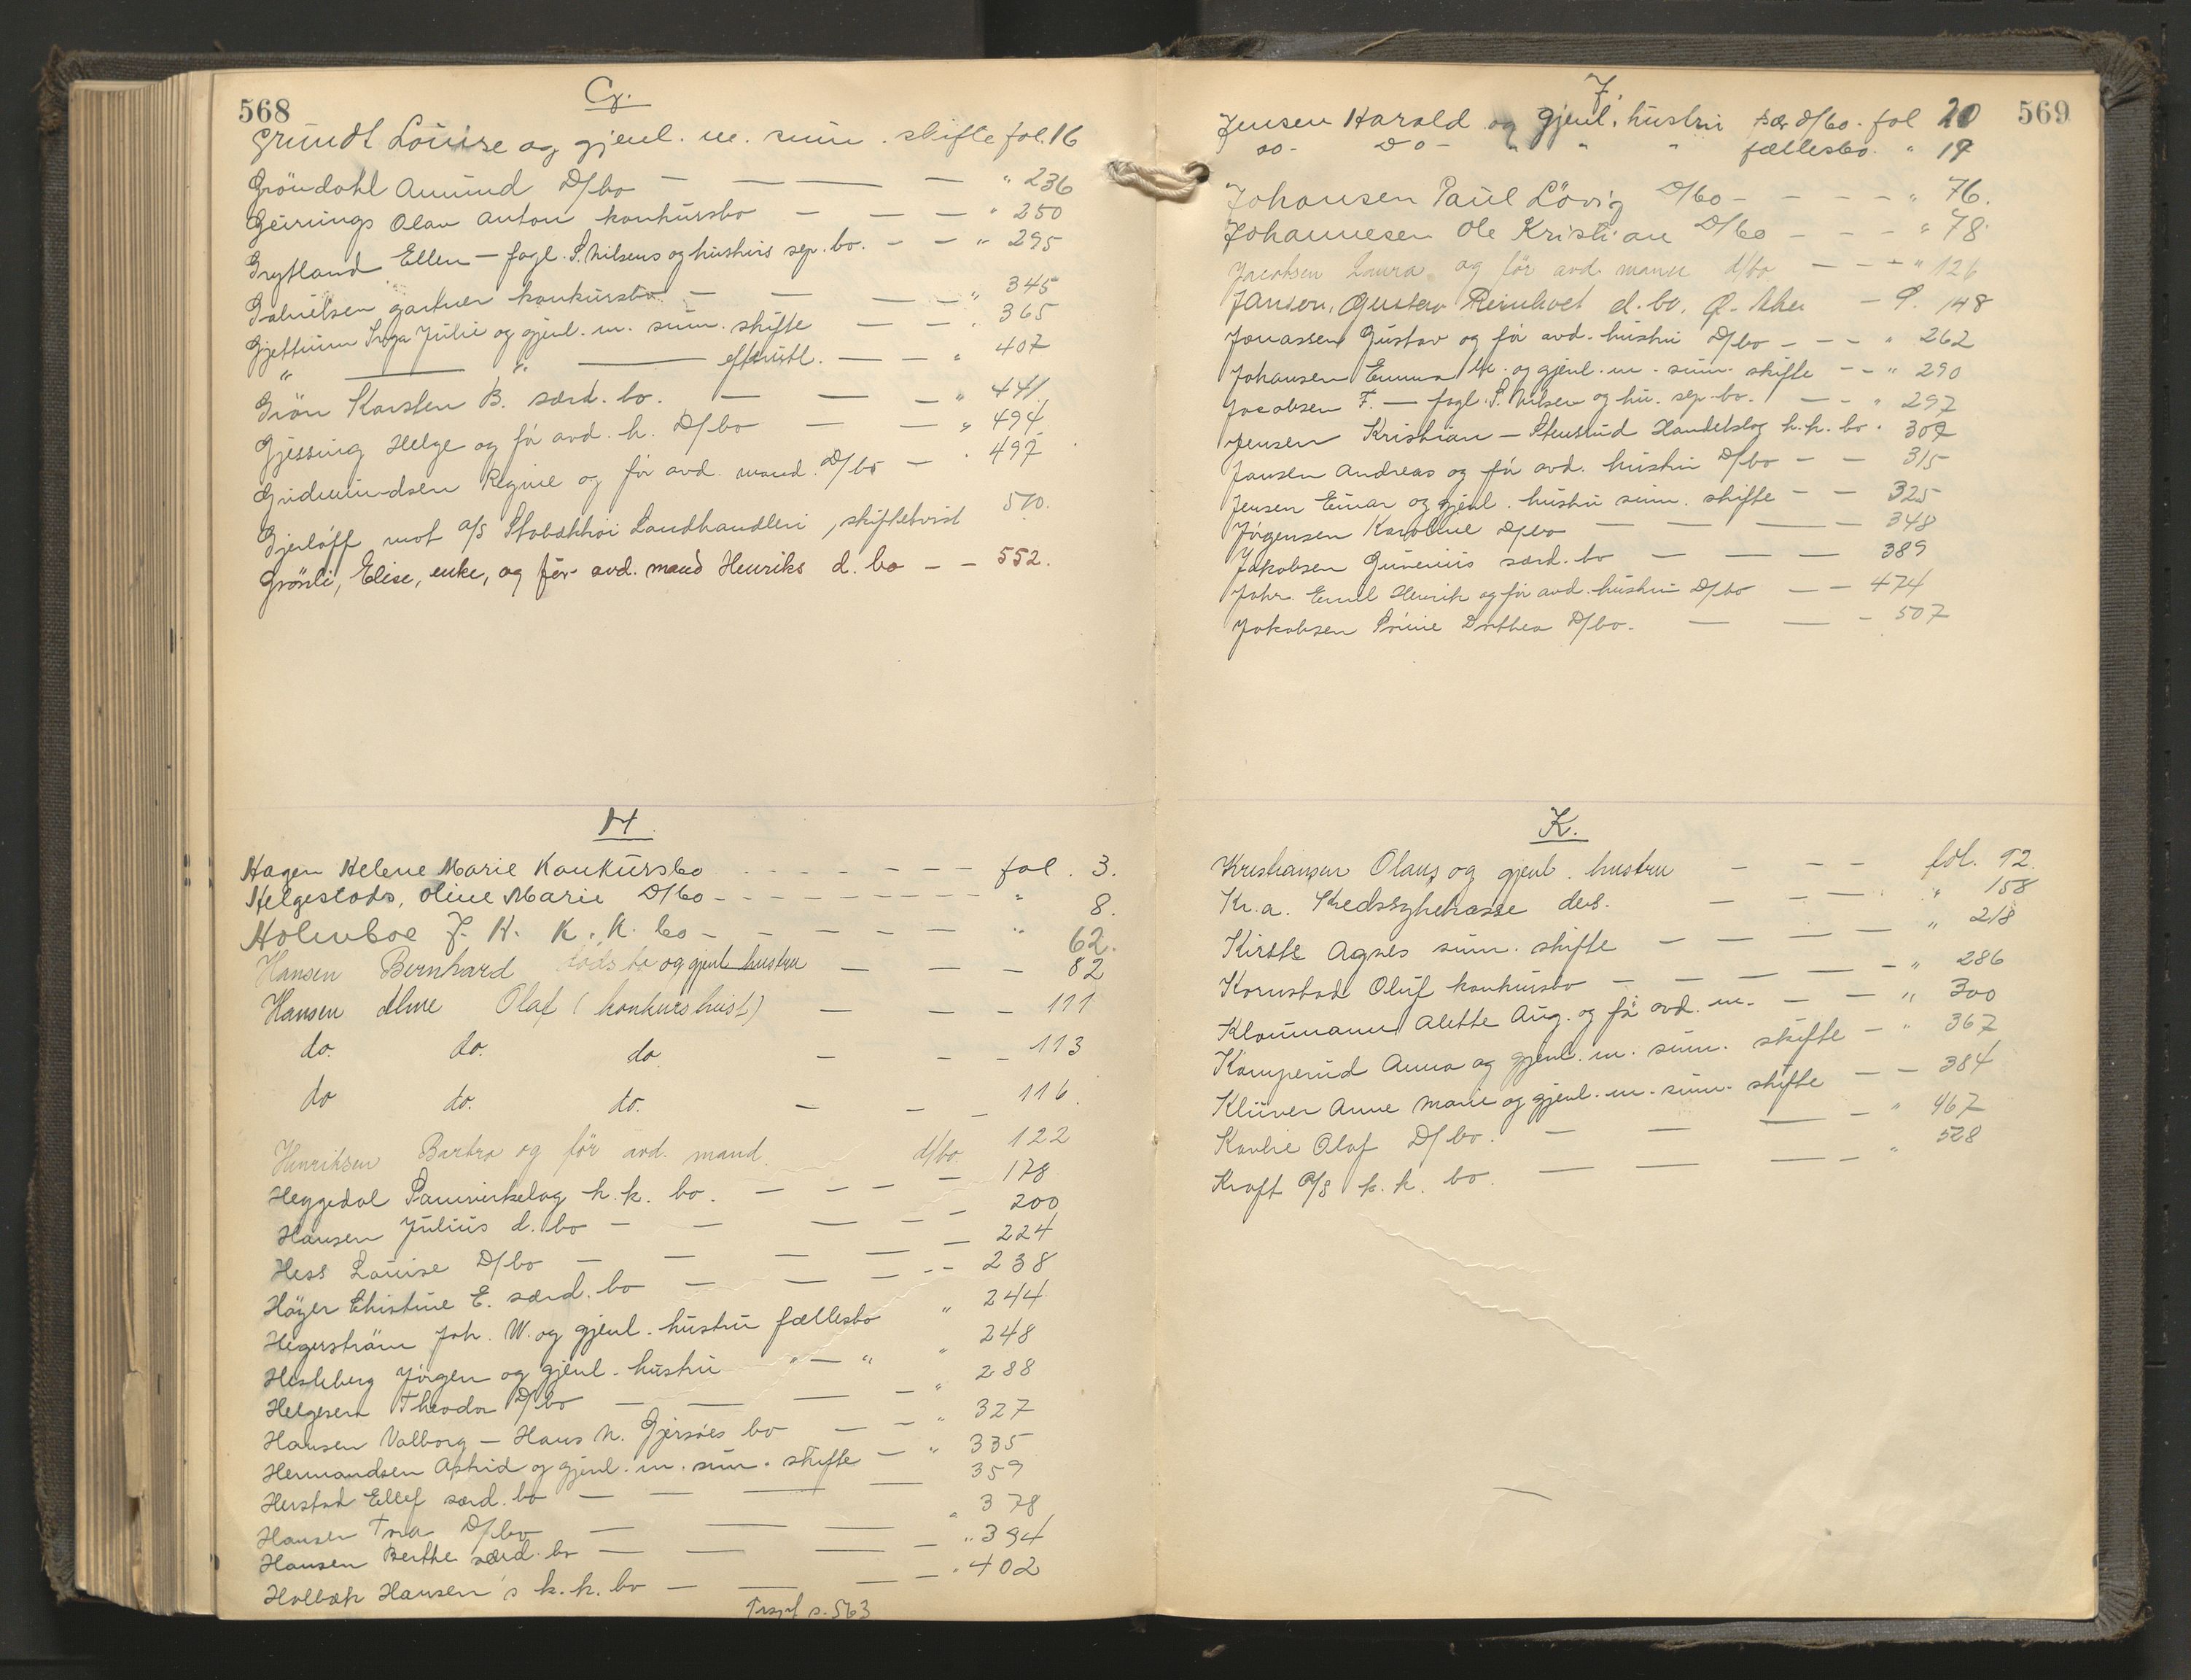 568
G.
Grundt Louise og gjenl. m. sum. skifte fol. 16
Gröndahl Amund D/bo — — — — " 236
Geirungs Olav Anton konkursbo — — — " 250
Grytland Ellen — fogl. S. Nilsens og hustrus sep. bo. — — " 295
Gabrielsen gartner konkursbo — — — — " 345
Gjettum Inga Julie og gjenl. m. sum. skifte — — " 365
" — " — efterutl. — — " 407
Grön Karsten B. særd. bo. — — — " 441
Gjessing Helge og før avd. h. D/bo — — " 494
Gudmundsen Regine og før avd. mand D/bo — " 497
Gjerløff mot A/S Stabækhøi Landhandleri, skiftetvist 510.
Grösli, Elise, enke, og før avd. mand Henriks d. bo — — 552.
H.
Hagen Helene Marie Konkursbo - - - - - - - fol. 3.
Helgestads, Oline Marie D/bo - - - - - - - " 8.
Holmboe J. K. K. K. bo - - - - - - " 62.
Hansen Bernhard döds bo og gjenl hustru — — — 82
Hansen Olaf (konkurstvist) — — — 111
do. do. do — — — 113
do do. do. — — — 116.
Henriksen Bartra og før avd. mand. d/bo. 122
Heggedal Samvirkelag k.k. bo. — — — — 178
Hansen Julius d. bo — — — — — 200
Hess Louise D/bo — — — — — 224
Höyer Christine E. særd. bo — — — - - 238
Hegerström Joh. W. og gjenl. hustru fællesbo " 244
Hesleberg Jörgen og gjenl. hustru " — " " 248
Helgesen Theodor D/bo — — — — " 288
Hansen Valborg — Hans N. Gjersøes bo — — " 327
Hermandsen Astrid og gjenl. m. sum. skifte — " 335
Herstad Ellef særd. bo — — — — 359
Hansen Tora D/bo — — — " 378
Hansen Berthe særd. bo — — — — " 394
Holbæk Hansen's k.k. bo — — — — " 402
Trspt s. 563
569
J.
Jensen Harald og gjenl. hustru sær D/bo. fol 20
do- Do- " " " fællesbo. " 19
Johansen Paul Lövig D/bo - - - - " 76.
Johannesen Ole Kristian D/bo - - - " 78.
Jacobsen Laura og før avd. mann d/bo — — — " 126
Jansen, Gustav Reinhort d. bo. — 148
Jonassen Gustav og før avd. hustru D/bo - — - " 262
Johansen Emma M. og gjenl. m. sum. skifte — - " 290
Jacobsen F. — fogl. S. Nilsen og hu. sep. bo. — — " 297
Jensen Kristian — Stensrud Handelslag k.k. bo. 307
Jansen Andreas og før avd. hustru D/bo — — 315
Jensen Einar og gjenl. hustru sum. skifte — — 325
Jörgensen Karoline D/bo — — — — 348
Jakobsen Gunerius særd. bo — — — 389
Johr. Emil Henrik og før avd. hustru D/bo — — 474
Jakobsen Dorthea D/bo. — — - 507
K.
Kristiansen Olaus og gjenl. hustru — — — fol. 92.
Kr.a. Kredsygekasse — — — " 158
Kirste Agnes sum. skifte — — — — — " 218
Kornstad Oluf konkursbo — — — — — " 286
Kloumann Alette Aug. og før avd. m. — — " 300
Kamperud Anna og gjenl. m. sum. skifte — " 367
Klüver Anne Marie og gjenl. m. sum. skifte — — 384
Kavlie Olaf D/bo. — — — — " 467
Kraft A/S k.k. bo. — — — — " 528